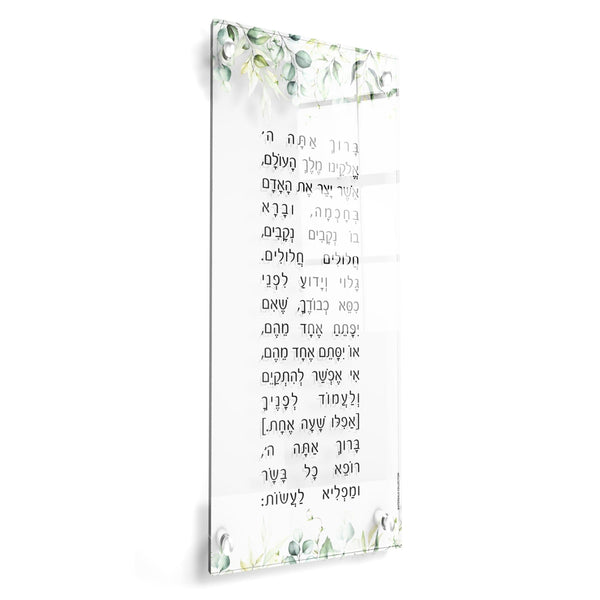 בָּרוּךְ אַתָּה ה׳
אֱלֹקֵינוּ מֶלֶךְ הָעוֹלָם,
אֲשֶׁר יָצַר אֶת הָאָדָם
בְּחָכְמָה, וּבָרָא
בוֹ נְקָבִים נְקָבִים,
חֲלוּלִים חֲלוּלִים.
גָּלוּי וְיָדוּעַ לִפְנֵי
כִסֵּא כְבוֹדֶךָ, שֶׁאִם
יִפָּתֵחַ אֶחָד מֵהֶם,
אוֹ יִסָּתֵם אֶחָד מֵהֶם,
אִי אֶפְשַׁר לְהִתְקַיֵּם
וְלַעֲמוֹד לְפָנֶיךָ
[אֲפִלּוּ שָׁעָה אֶחָת.]
בָּרוּךְ אַתָּה ה׳,
רוֹפֵא כָל בָּשָׂר
וּמַפְלִיא לַעֲשׂוֹת: